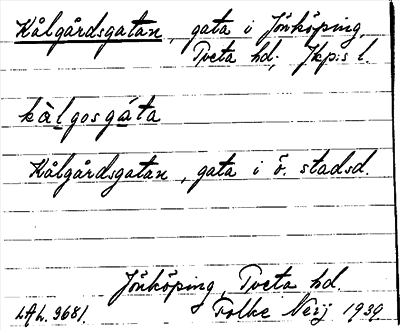 Kålgårdsgatan, gata i Jönköping
Tveta hd; Jkpis l.
kålgosgáta
Kålgårdsgatan, gata i ö. stadsd.
Jönköping, Tveta hd.
LAL. 3681. Folke Nerj 1939